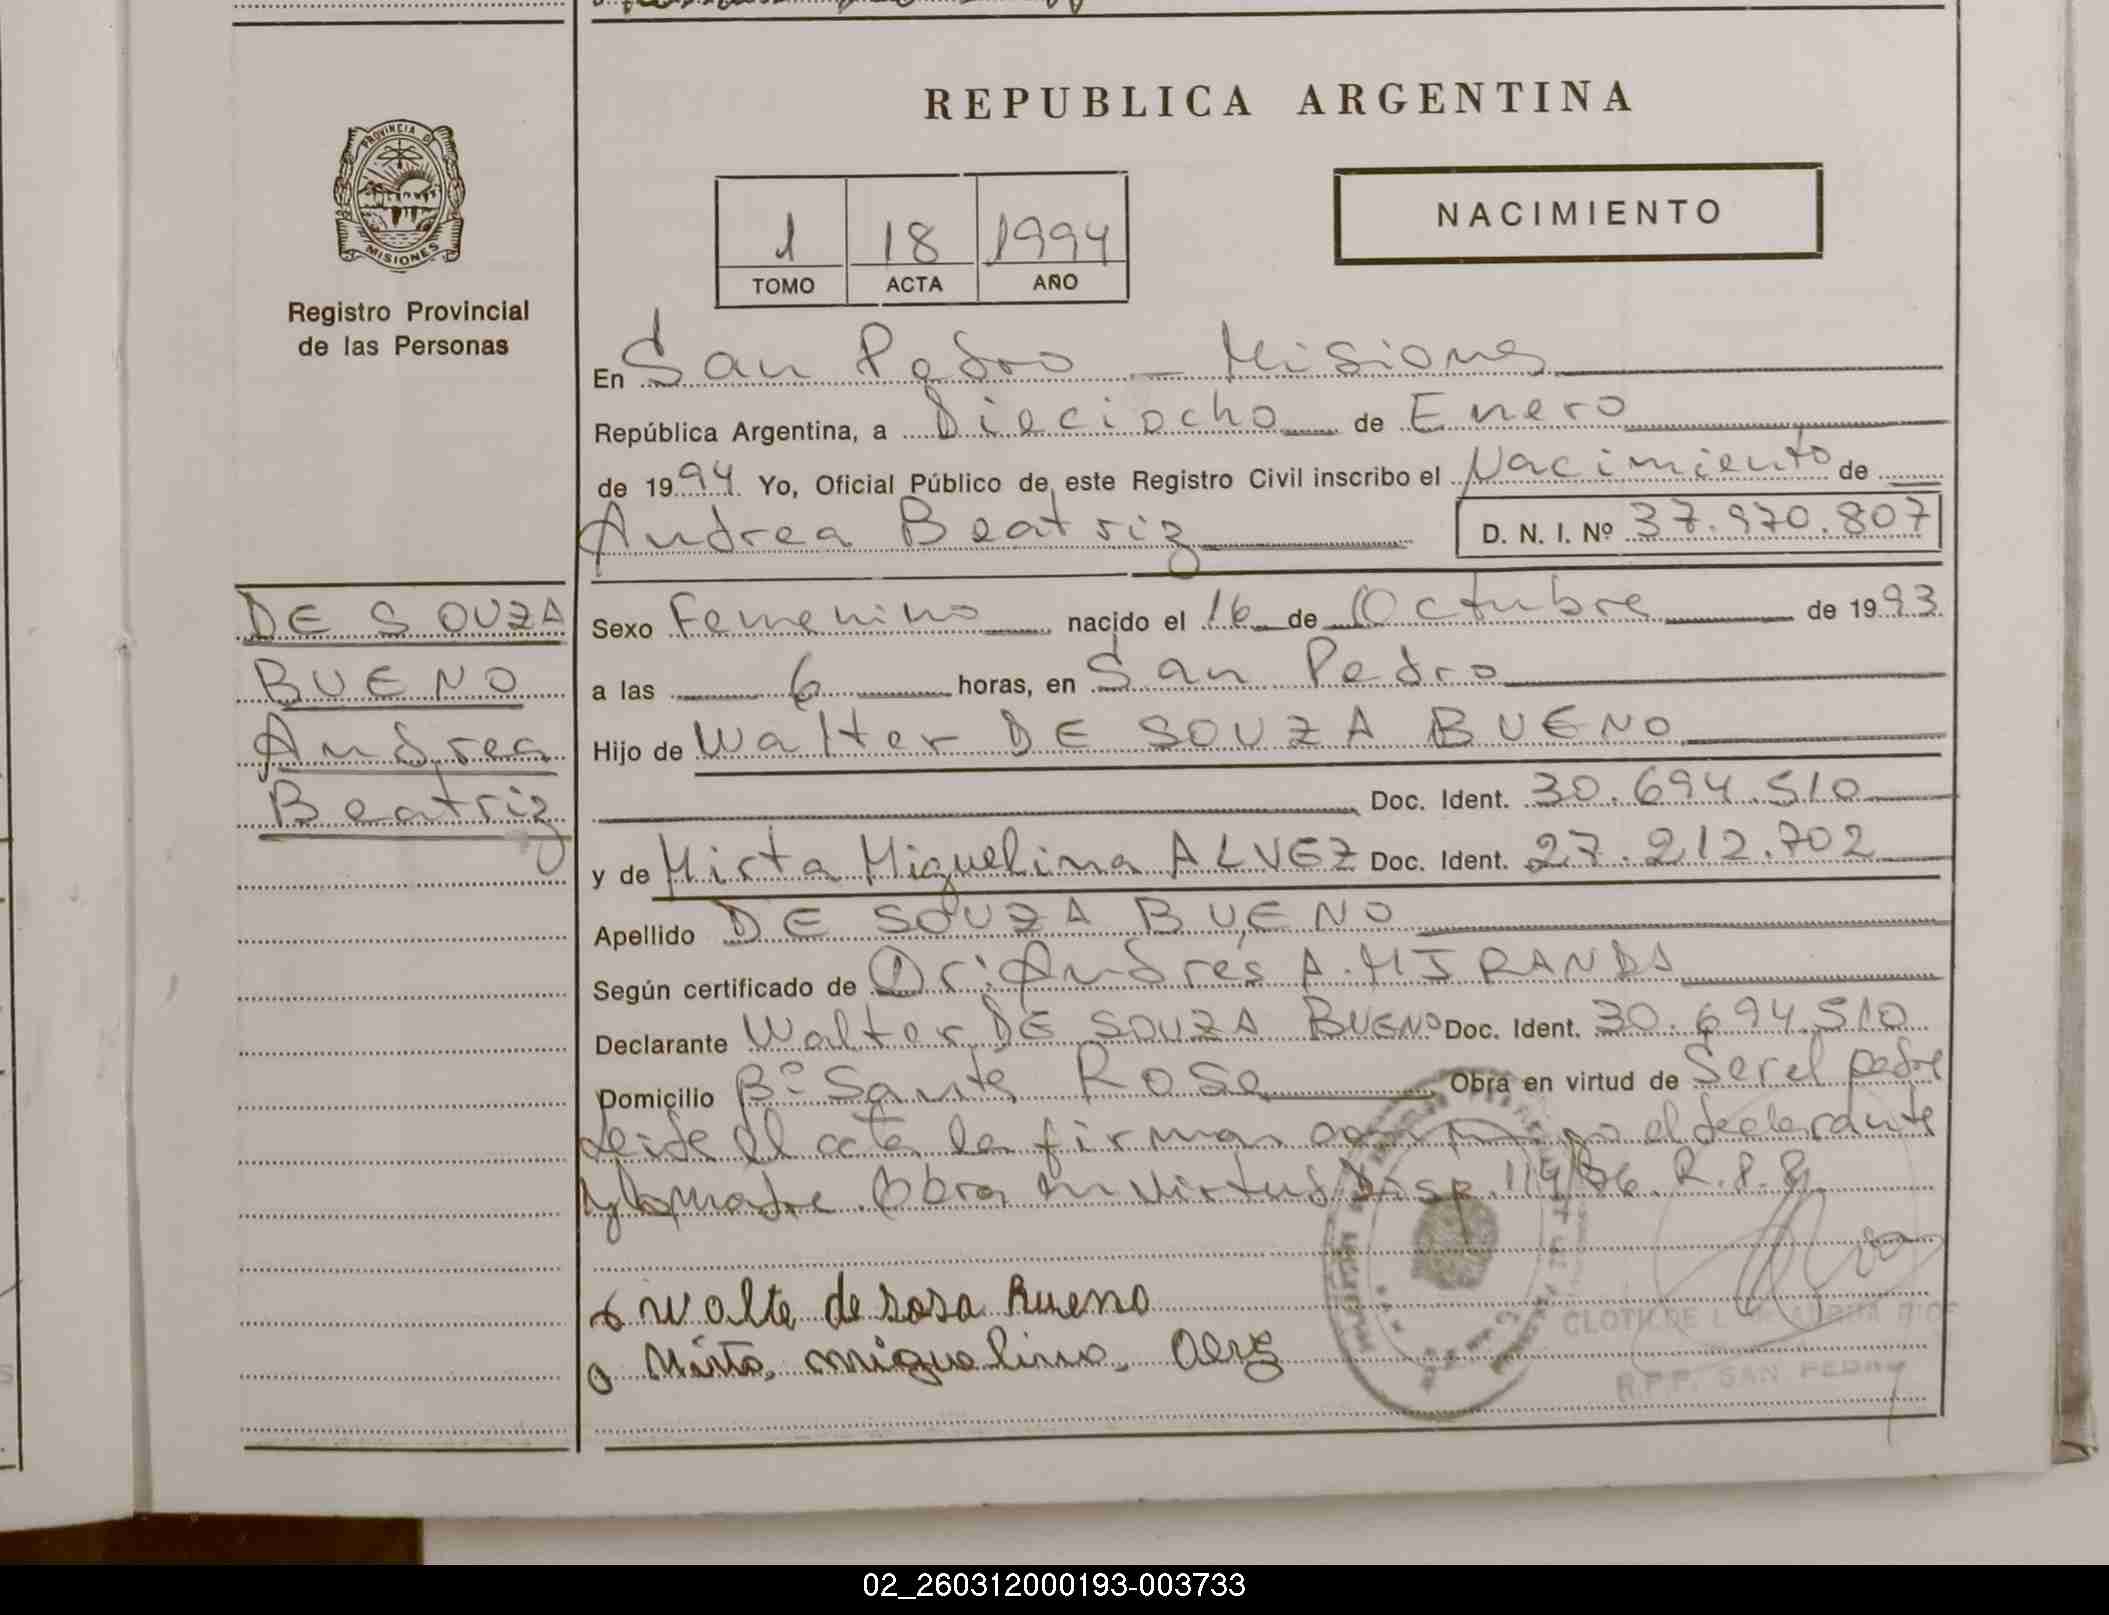 REPUBLICA ARGENTINA
PROVINCIA D
MISIONES
Registro Provincial
de las Personas
1 18 1994
TOMO ACTA AÑO
NACIMIENTO
En San Pedro - Misiones
República Argentina, a Dieciocho de Enero
de 1994 Yo, Oficial Público de este Registro Civil inscribo el Nacimiento de
Andrea Beatriz D. N. I. Nº 37.970.807
DE SOUZA
BUENO
Andrea
Beatriz
Sexo Femenino nacido el 16 de Octubre de 1993
a las 6 horas, en San Pedro
Hijo de Walter DE SOUZA BUENO
Doc. Ident. 30.694.510
y de Mirta Miguelina ALVEZ Doc. Ident. 27.212.702
Apellido DE SOUZA BUENO
Según certificado de Dr: Andres A. MIRANDA
Declarante Walter DE SOUZA BUENO Doc. Ident. 30.694.510
Domicilio Bº Santa Rosa Obra en virtud de Ser el padre
Leida el acta la firman conmigo el declarante
y la madre. Obra en virtud Disp. 114/86. R.P.P.
Walte de sosa Bueno
Mirta miguelina
CLOTILDE L.
R.P.P. SAN PEDRO
02_260312000193-003733